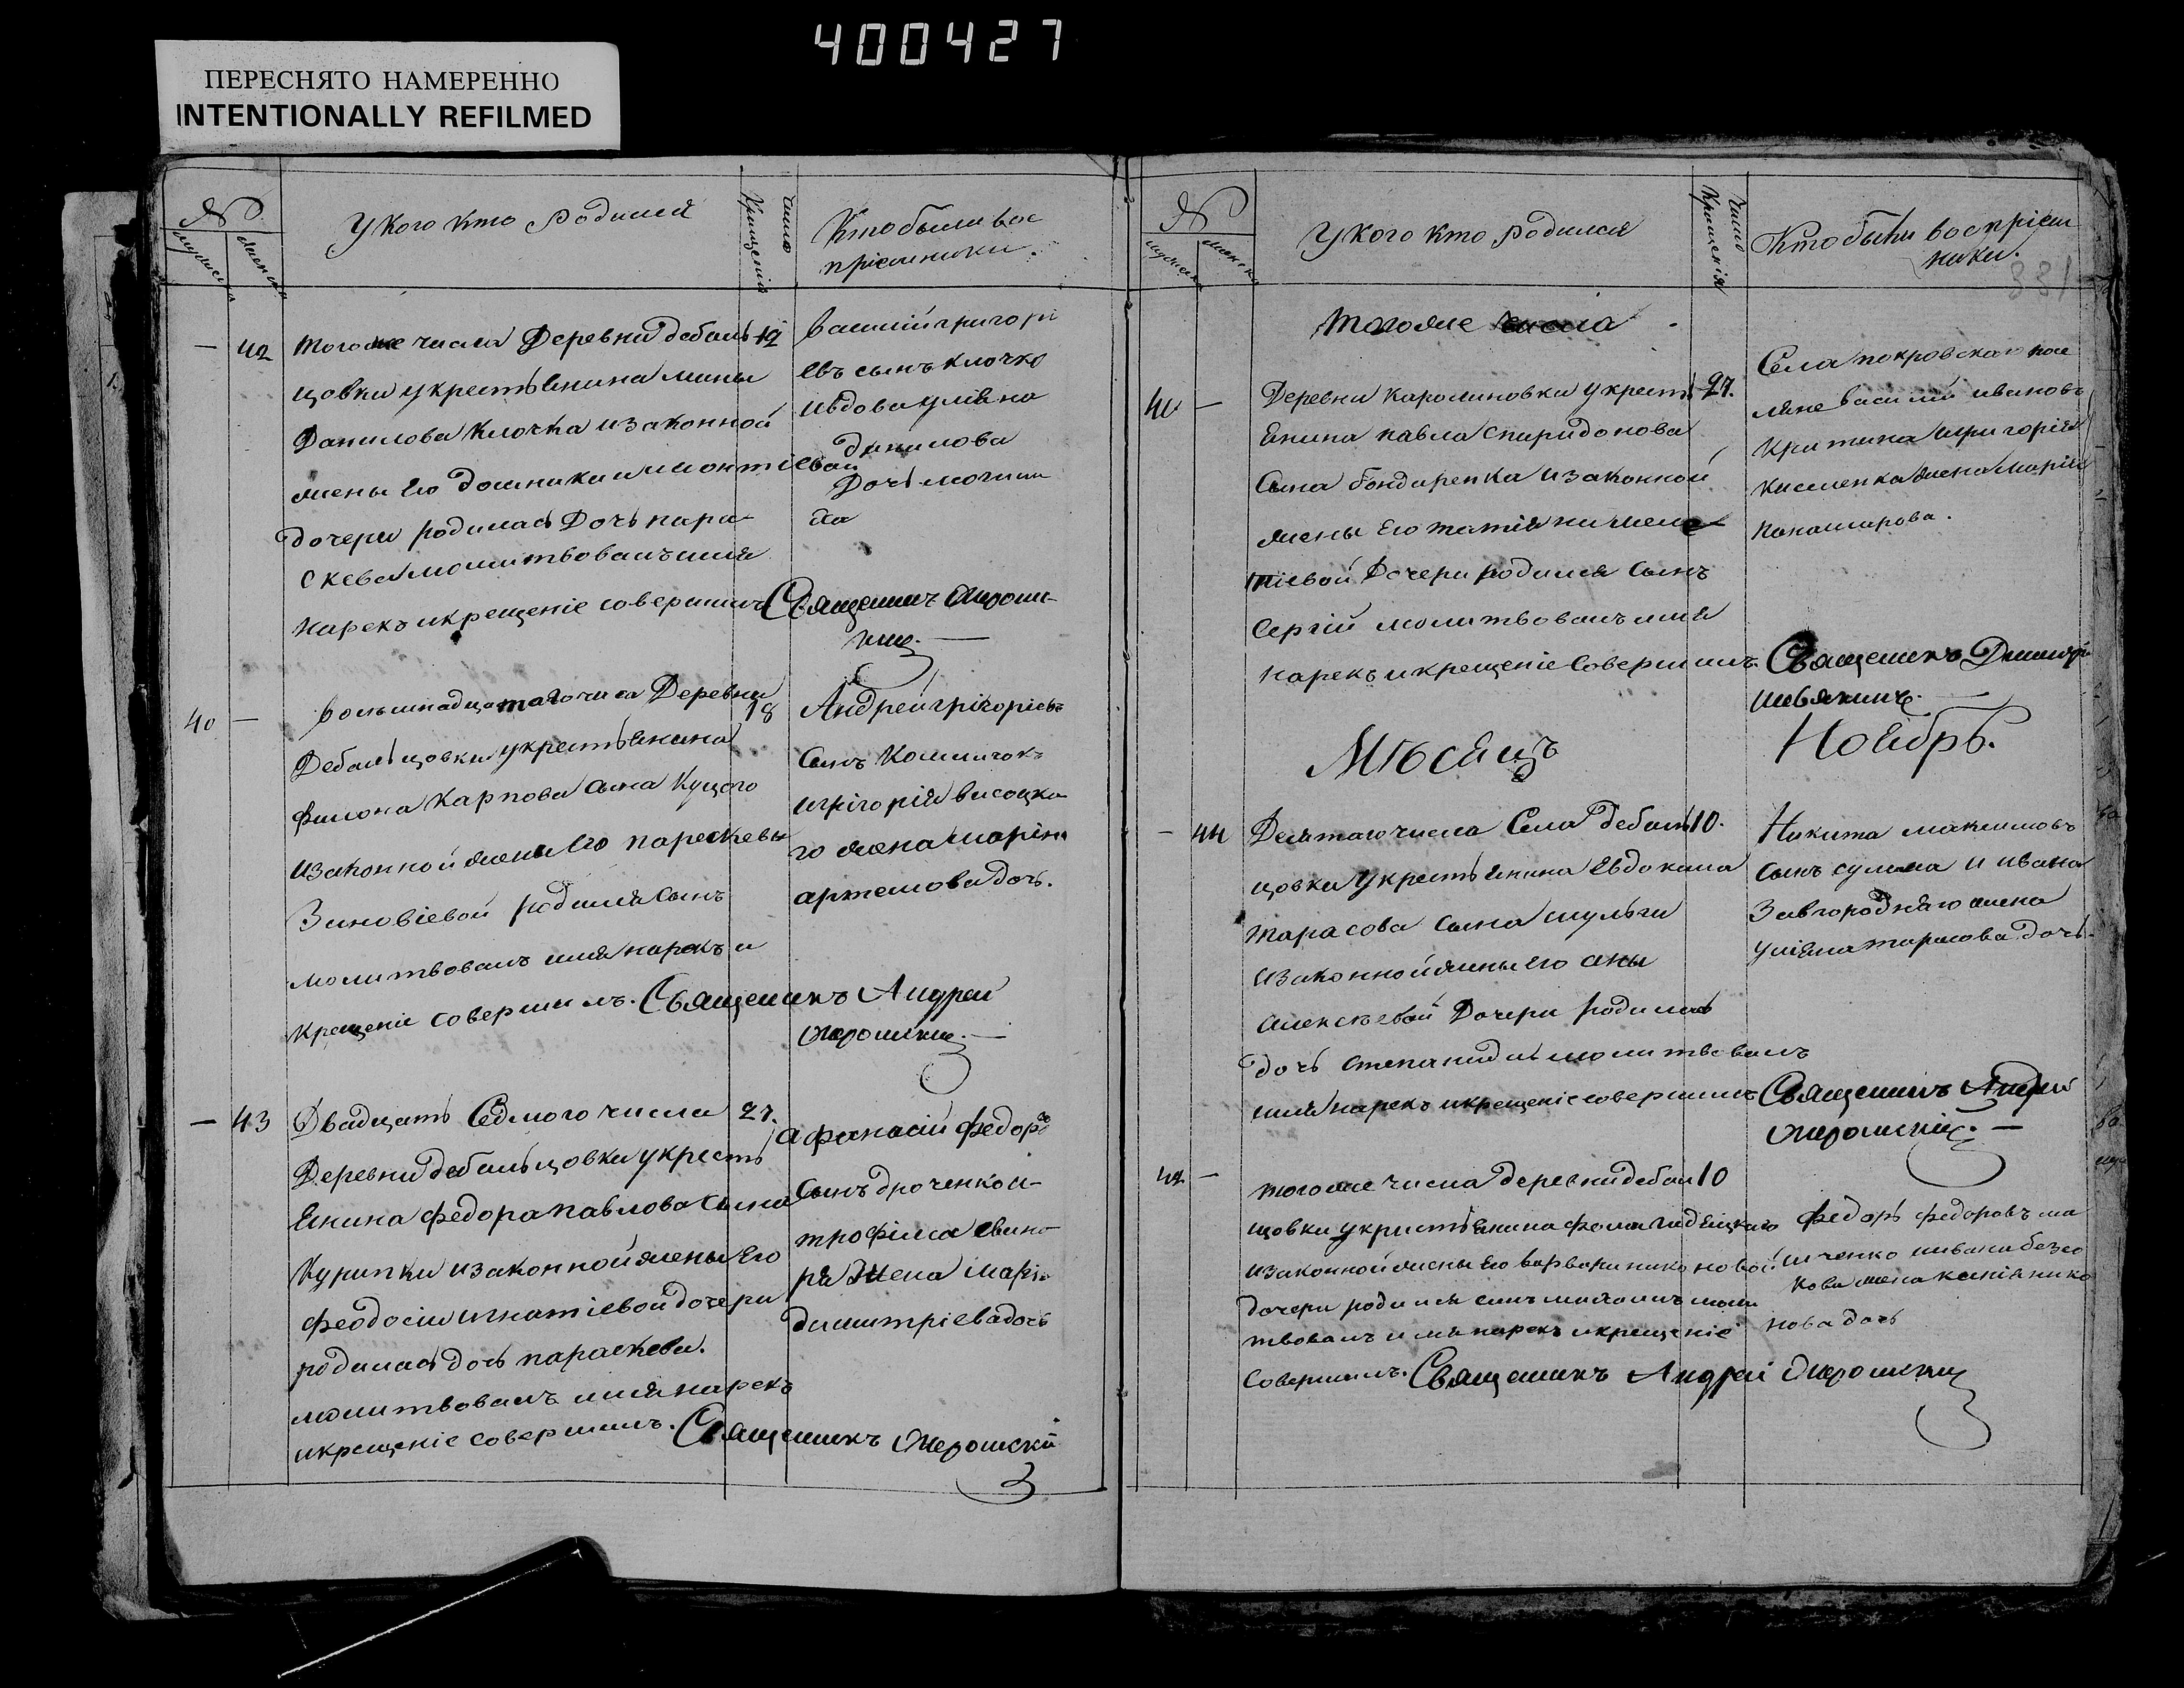 400427
ПЕРЕСНЯТО НАМЕРЕННО
INTENTIONALLY REFILMED
№
мужеска
женска
У кого кто родился
число
Крещенія
Кто были вос
пріемники.
— 42 тогоже числа Деревни дебаль 12
цовки у крестьянина мины
Данилова Клочка изаконной
жены его домники леонтіевой
дочери родилась Дочь пара-
скева молитвовалъ имя
нарекъ и крещеніе совершилъ Священникъ
василій григорі
евъ сынъ клочко
ивдова уліяна
данилова
Дочь
ха
40 — восьмнадцатаго числа Деревни 18
Дебальцовки у крестьянина
филона Карпова сына Куцого
изаконной жены его парескевы
Зиновіевой родился сынъ
молитвовалъ имя нарекъ и
крещеніе совершилъ. Священникъ Андрей
Андрей григоріевъ
сынъ
игрігорія висоцка
го жена маріна
артемова дочь.
— 43 Двадцать Седмого числа 27.
Деревни дебальцовки у кресть
янина федора павлова сына
Курипки изаконной жены его
феодосіи игнатіевой дочери
родилась дочь параскева.
молитвовалъ имя нарекъ
и крещеніе совершилъ. Священникъ
афанасій федоръ
сынъ дроченко и
трофима свино
ря жена марія
димитріева дочь
№
мужеска
женска
У кого кто родился
число
Крещенія
Кто были воспріем
ники.
331
тогоже числа
40 — Деревни Каролиновки у кресть 27.
янина павла спиридонова
сына бондаренка изаконной
жены его татіяни
тіевой дочери родился сынъ
сергій молитвовалъ имя
нарекъ и крещеніе совершилъ. Священникъ Димитрій
Села покровскаго посе
ляне василій ивановъ
игригорія
кисленка жена марія
Мѣсяцъ Ноябрь.
— 44 Десятаго числа Села дебаль 10.
цовки у крестьянина Евдокима
тарасова сына шульги
изаконной жены его аны
алексѣевой Дочери родилась
дочь степанида молитвовалъ
имя нарекъ и крещеніе совершилъ Священникъ Андрей
Никита максимовъ
сынъ сулима и ивана
Завгородняго жена
уліяна тарасова дочь.
— тогоже числа деревни дебал 10
цовки у крестьянина фомы
изаконной жены его варвари никоновой
дочери родился сынъ моли
твовалъ имя нарекъ и крещеніе
совершилъ. Священникъ Андрей
федоръ федоровъ
нова дочь